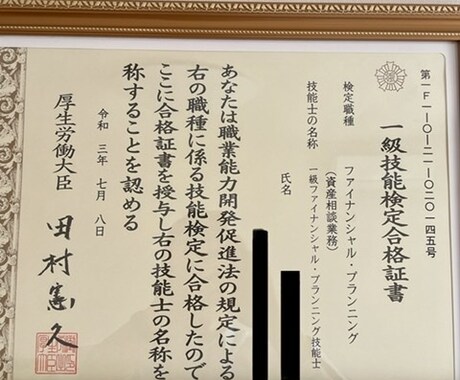 第一F一-〇-二一-〇二〇一四五号
一級技能検定合格証書
検定職種 ファイナンシャル・プランニング
(資産相談業務)
技能士の名称 一級ファイナンシャル・プランニング技能士
氏名
あなたは職業能力開発促進法の規定による
右の職種に係る技能検定に合格したので
ここに合格証書を授与し右の技能士の名称を
称することを認める
令和 三年 七月 八日
厚生労働大臣 田村憲久